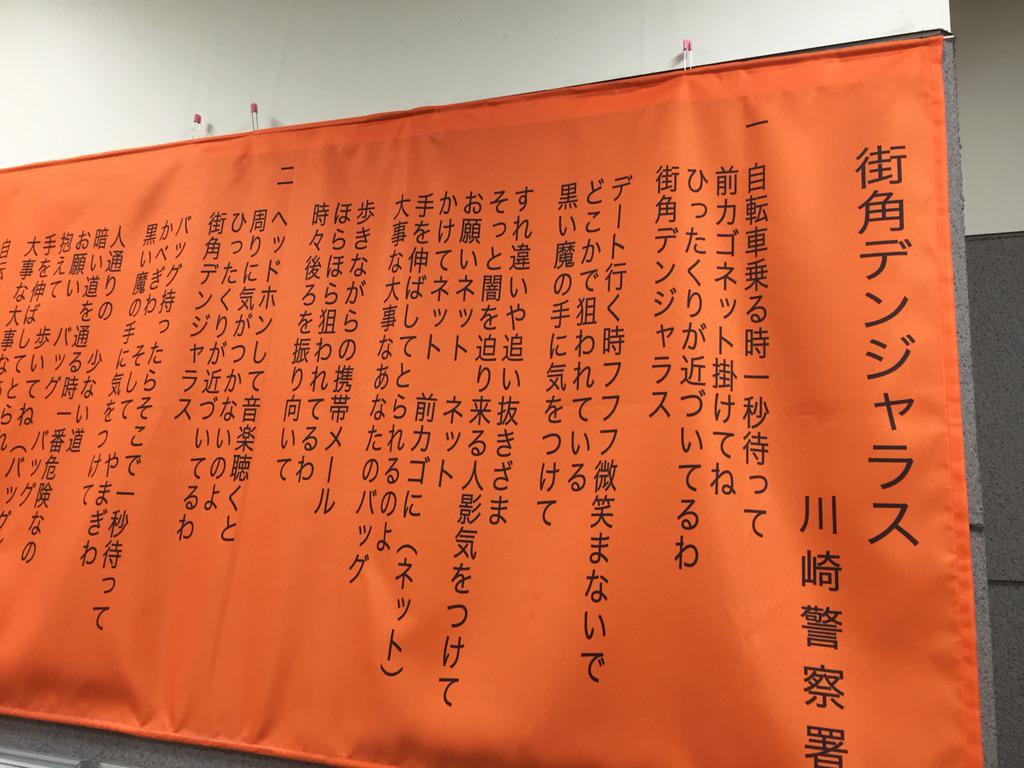 街角デンジャラス
川崎警察署
一
自転車乗る時一秒待って
前カゴネット掛けてね
ひったくりが近づいてるわ
街角デンジャラス
デート行く時フフフ微笑まないで
どこかで狙われている
黒い魔の手に気をつけて
すれ違いや追い抜きざま
そっと闇を迫り来る人影気をつけて
お願いネット ネット
かけてネット 前カゴに(ネット)
手を伸ばしてとられるのよ
大事な大事なあなたのバッグ
歩きながらの携帯メール
ほらほら狙われてるわ
時々後ろを振り向いて
二
ヘッドホンして音楽聴くと
周りに気がつかないのよ
ひったくりが近づいてるわ
街角デンジャラス
バッグ持ったらそこで一秒待って
かべぎわ そして やまぎわ
黒い魔の手に気をつけて
人通りの 少ない道
暗い道を通る時一番危険なの
お願い バッグ
抱えて 歩いてね(バッグ
手を伸ばしてとられ
大事な大事な